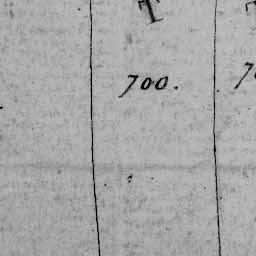 T
700.